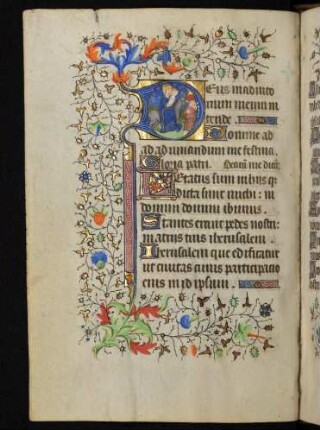 Deus in adiuto
rium meum in
tende Domine ad
adiuuandum me festina.
Gloria patri.
Letatus sum in hiis que
dicta sunt michi: in
domum domini ibimus.
Stantes erant pedes nostri:
in atriis tuis iherusalem.
Iherusalem que edificatur
ut ciuitas cuius participacio
eius in id ipsum.